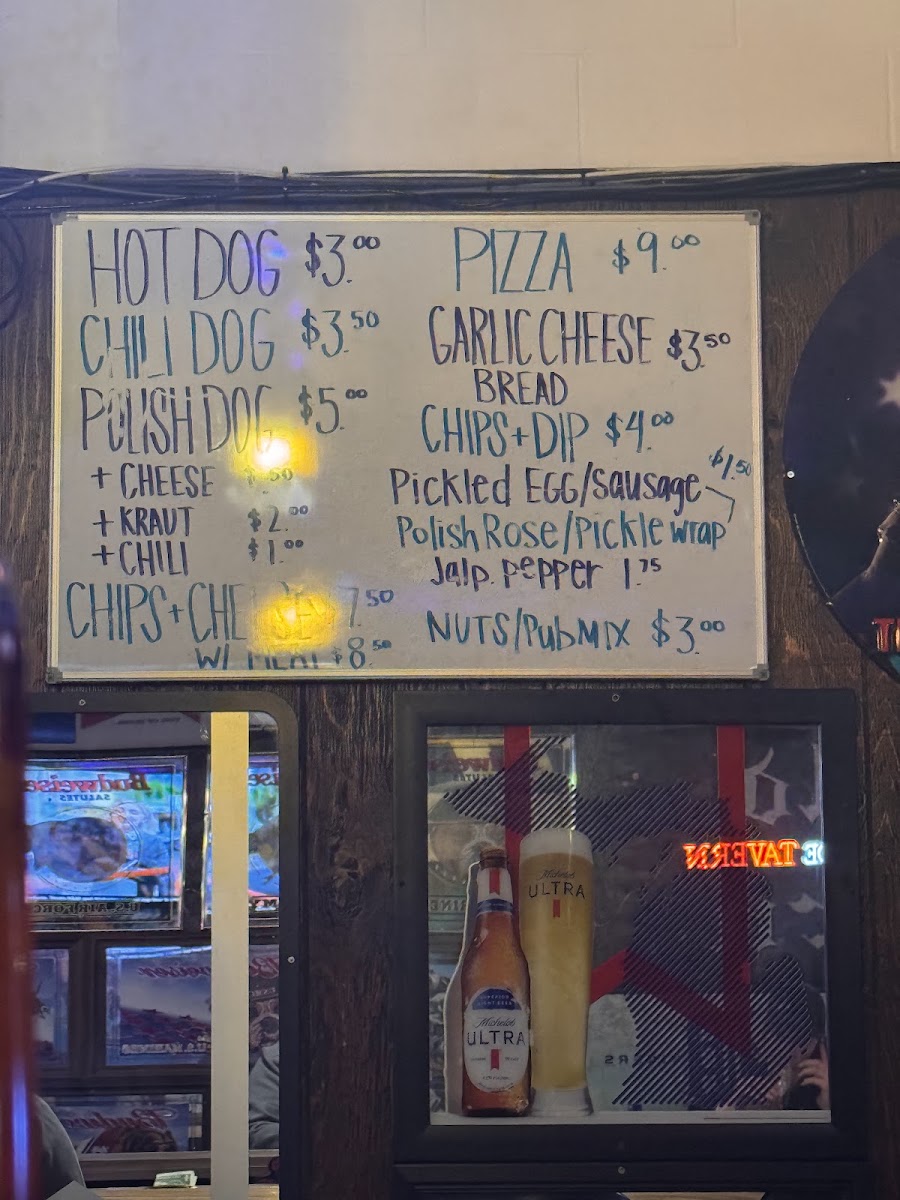 HOT DOG $3.00
CHILI DOG $3.50
POLISH DOG $5.00
+ CHEESE $.50
+ KRAUT $2.00
+ CHILI $1.00
CHIPS + CHEESE 7.50
W/ MEAT $8.50
PIZZA $9.00
GARLIC CHEESE $3.50
BREAD
CHIPS + DIP $4.00
Pickled EGG/Sausage $1.50
Polish Rose/Pickle wrap
Jalp. pepper 1.75
NUTS/PubMIX $3.00
Budweiser
SALUTES
U.S. AIR FORC
Budweiser
U.S. MARINES
Michelob
ULTRA
Michelob
ULTRA
TAVERN